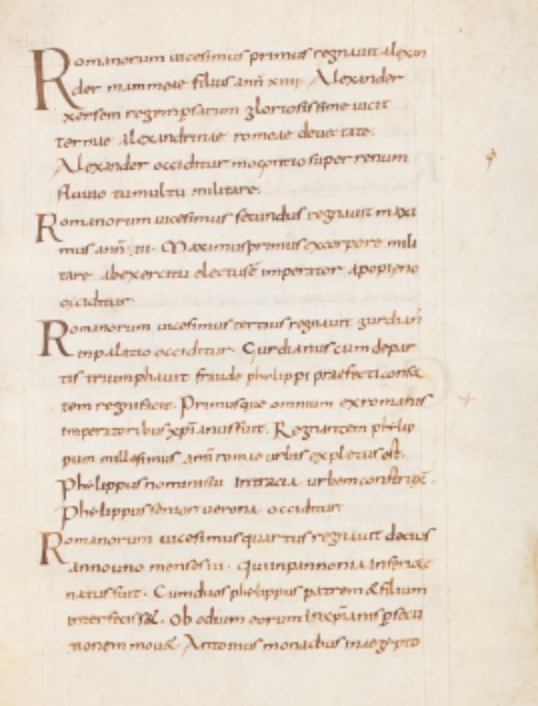 Romanorum uicesimus primus regnauit alexan
der mammeae filius ann xiiii. Alexander
xersem regem persarum gloriosissime uicit
termae alexandrinae romae dedicatae.
Alexander occiditur mogontio super renum
fluuio tumultu militare.
Romanorum uicesimus secundus regnauit maxi
mus ann iii. Maximus primus ex corpore mili
tare ab exercitu electus imperator apopieno
occiditur
Romanorum uicesimus tertius regnauit gurdian
in palatio occiditur. Gurdianus cum depar
tis triumphauit fraude phelippi praefecti
tem regni fecit. Primusque omnium ex romanis
imperatoribus xpianus fuit. Regnantem phelip
pum millesimus ann romae urbis expletus est.
Phelippus nomini sui in tracia urbem constrix.
Phelippus senior uerona occiditur
Romanorum uicesimus quartus regnauit decius
anno uno menses iii. Qui in pannonia inferiore
natus fuit. Cum duos phelippus patrem & filium
interfeciss&. Ob odium eorum in xpianis persecu
tionem mou&. Antonius monachus in aegypto